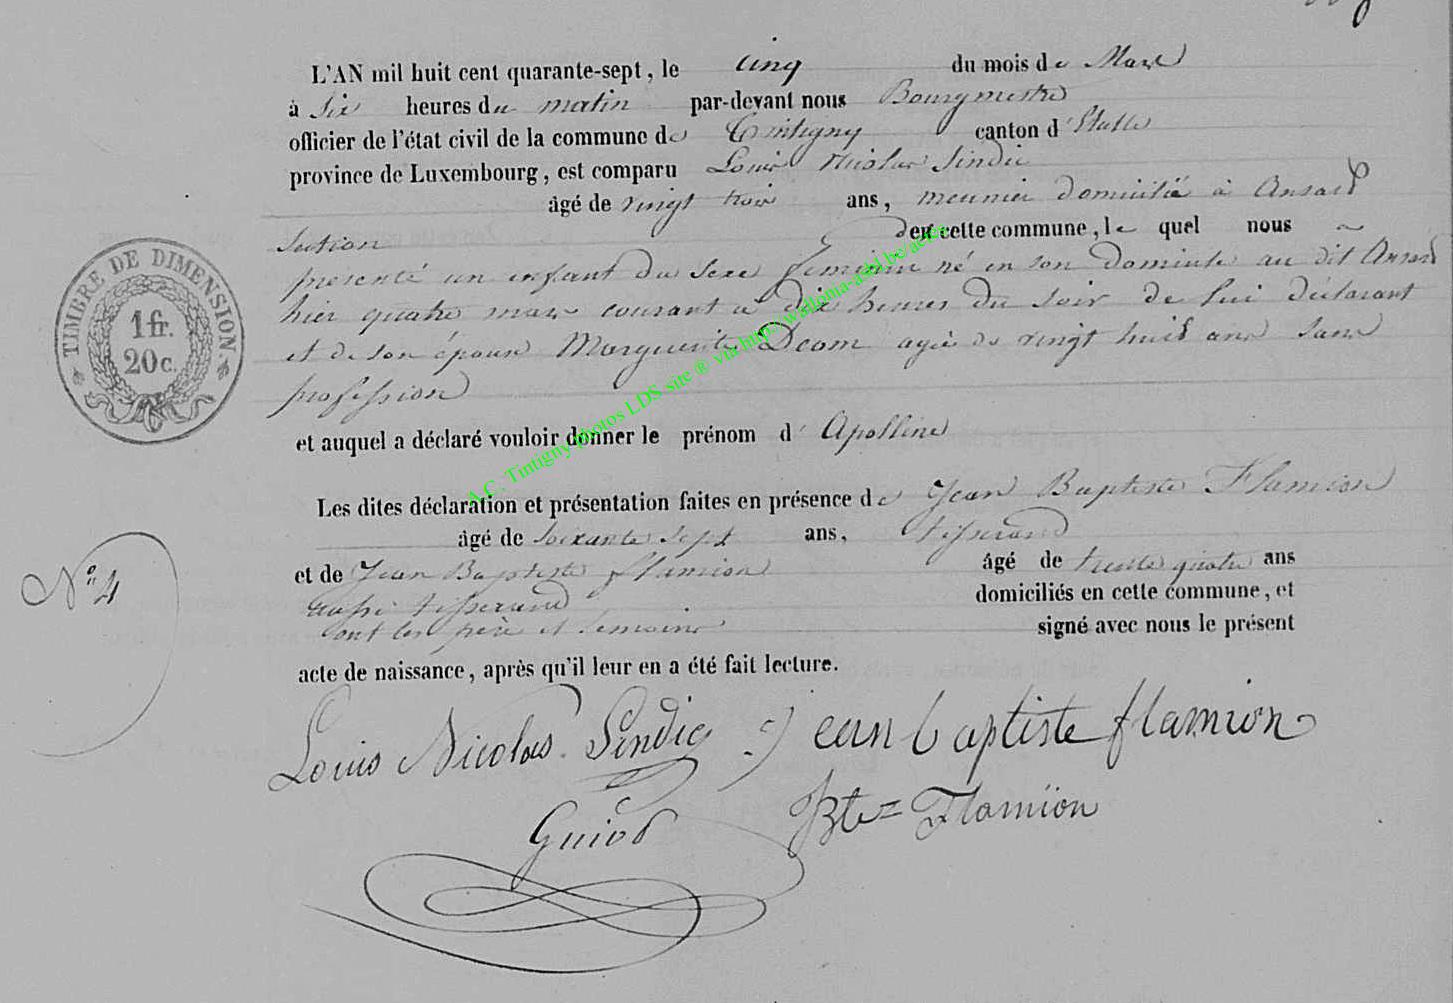 L'AN mil huit cent quarante-sept, le cinq du mois de Mars
à Six heures du matin par-devant nous Bourgmestre
officier de l'état civil de la commune de Tintigny canton d'Etalle
province de Luxembourg, est comparu Louis Nicolas Sindic
âgé de vingt trois ans, meunier domicilié à Ansart
Section de cette commune, le quel nous
présenté un enfant du sexe feminin né en son domicile au dit Ansart
hier quatre mars courant à dix heures du soir de lui déclarant
et de son épouse Marguerite Deom agée de vingt huit ans sans
profession
et auquel a déclaré vouloir donner le prénom d'Apolline
Les dites déclaration et présentation faites en présence de Jean Baptiste Flamion
âgé de soixante sept ans, tisserand
et de Jean Baptiste flamion âgé de trente quatre ans
aussi tisserand domiciliés en cette commune, et
ont les père et témoins signé avec nous le présent
acte de naissance, après qu'il leur en a été fait lecture.
Louis Nicolas Sindic Jean baptiste flamion
Guiot Bte Flamion
N° 4
TIMBRE DE DIMENSION.
1 fr.
20 c.
A.C. Tintigny photos LDS site ® via http://wallonia-asbl.be/actes